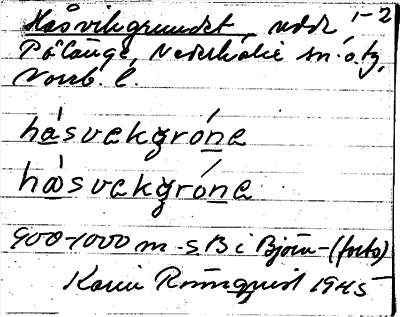 Håsvikgrundet, uddr 1-2
Pålänge, Nederkalix sn. o. tg,
Norrb. l.
håsvekgróne
håsvekgróne
900-1000 m. S. B i Björn-(forts)
Karin Rönnqvist 1945